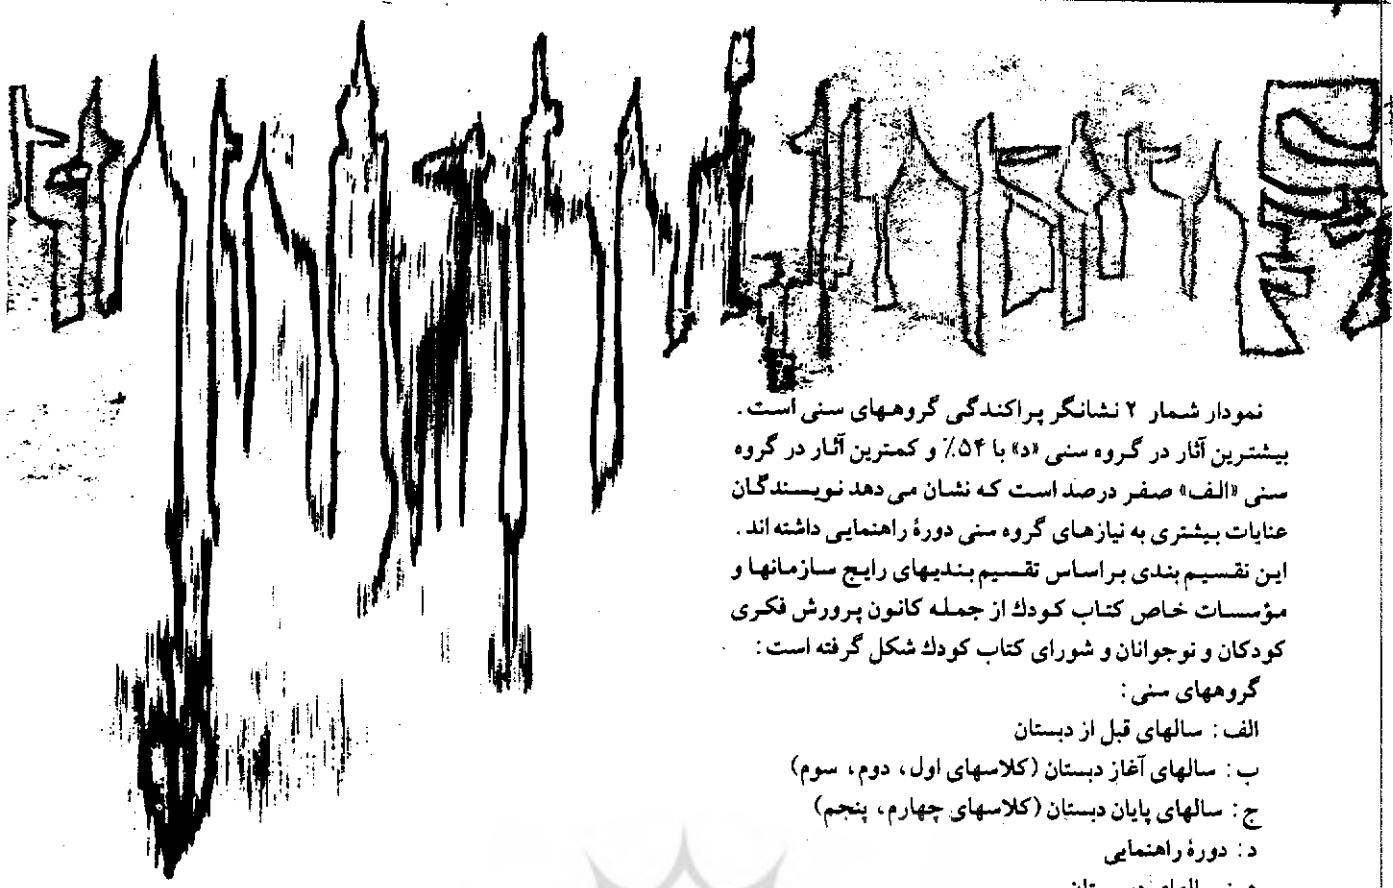 نمودار شمار ۲ نشانگر پراکندگی گروههای سنی است.
بیشترین آثار در گروه سنی «د» با ۵۴٪ و کمترین آثار در گروه
سنی «الف» صفر درصد است که نشان می دهد نویسندگان
عنایات بیشتری به نیازهای گروه سنی دورۀ راهنمایی داشته اند.
این تقسیم بندی براساس تقسیم بندیهای رایج سازمانها و
مؤسسات خاص کتاب کودك از جمله کانون پرورش فکری
کودکان و نوجوانان و شورای کتاب کودك شکل گرفته است:
گروههای سنی:
الف: سالهای قبل از دبستان
ب: سالهای آغاز دبستان (کلاسهای اول، دوم، سوم)
ج: سالهای پایان دبستان (کلاسهای چهارم، پنجم)
د: دورۀ راهنمایی